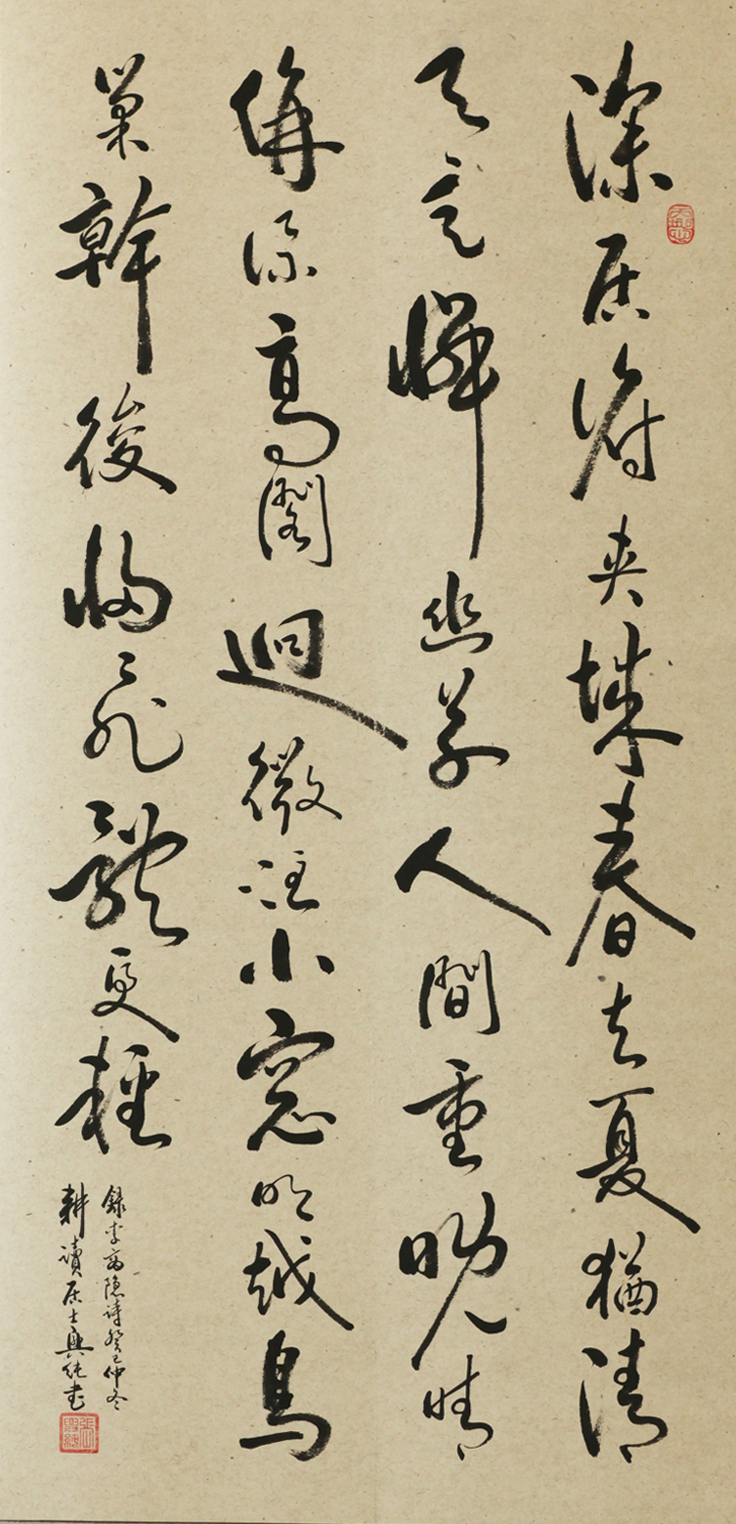 深居俯夾城春去夏猶清
天意憐幽草人間重晚晴
併添高閣迥微注小窓明越鳥
巢幹後歸飛體更輕
錄李商隱詩癸巳仲冬
耕讀居士興純書